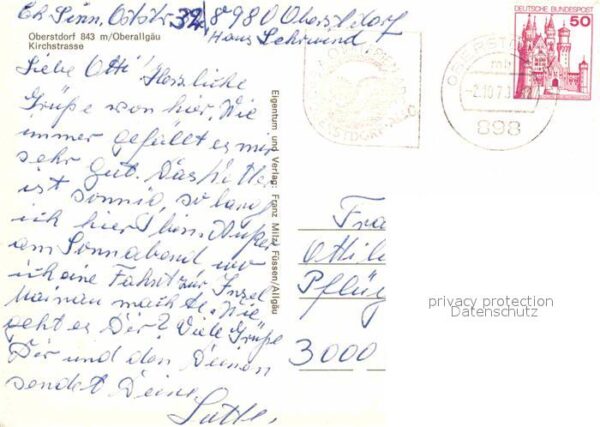 Oststr. 39, 8980 Oberstdorf
Hans
Oberstdorf 843 m/Oberallgäu
Kirchstrasse
Liebe Otti! Herzliche
Grüße von hier. Wie
immer gefällt es mir
sehr gut. Das Wetter
ist sonnig, so lang
ich hier bin. Außer
am Sonnabend wo
ich eine Fahrt zur Insel
Mainau machte. Wie
geht es Dir? Viele Grüße
Dir und den Deinen
sendet Deine
Eigentum und Verlag: Franz Milz, Füssen/Allgäu
DEUTSCHE BUNDESPOST
50
OBERSTDORF
898
Fra
Ottil
Pflüg
3000
privacy protection
Datenschutz